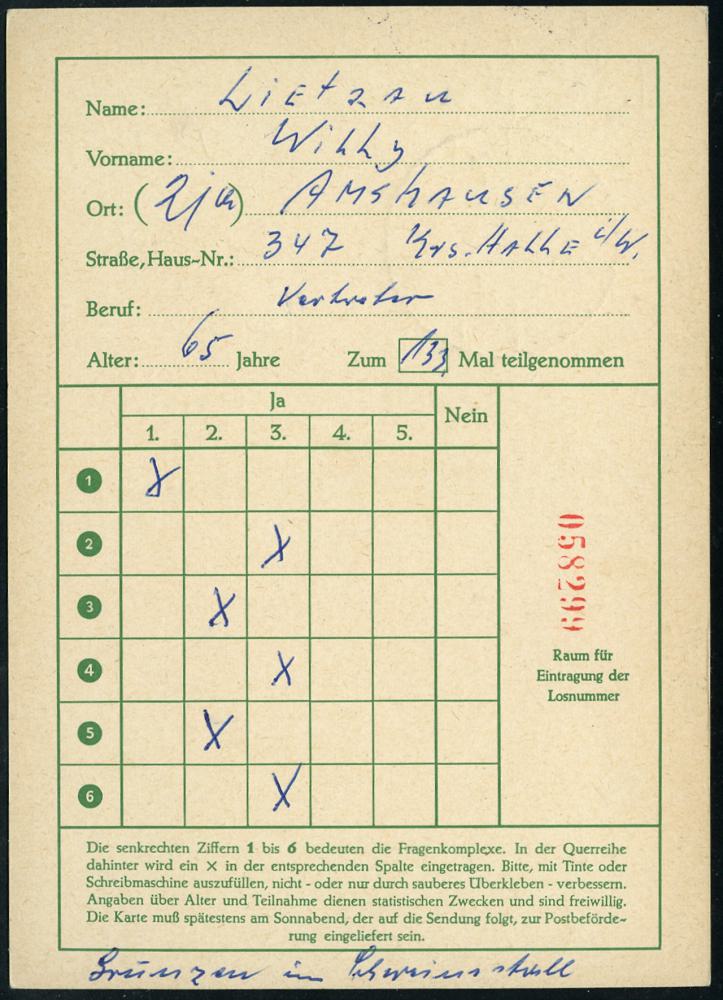 Name: Lietzau
Vorname: Willy
Ort: (21a) AMSHAUSEN
Straße, Haus-Nr.: 347 Krs. HALLE i/W.
Beruf: Vertreter
Alter: 65 Jahre Zum 133 Mal teilgenommen
Ja Nein
1. 2. 3. 4. 5.
1 X
2 X
3 X
4 X
5 X
6 X
058299
Raum für
Eintragung der
Losnummer
Die senkrechten Ziffern 1 bis 6 bedeuten die Fragenkomplexe. In der Querreihe
dahinter wird ein × in der entsprechenden Spalte eingetragen. Bitte, mit Tinte oder
Schreibmaschine auszufüllen, nicht - oder nur durch sauberes Überkleben - verbessern.
Angaben über Alter und Teilnahme dienen statistischen Zwecken und sind freiwillig.
Die Karte muß spätestens am Sonnabend, der auf die Sendung folgt, zur Postbeförde-
rung eingeliefert sein.
Grunzen im Schweinestall